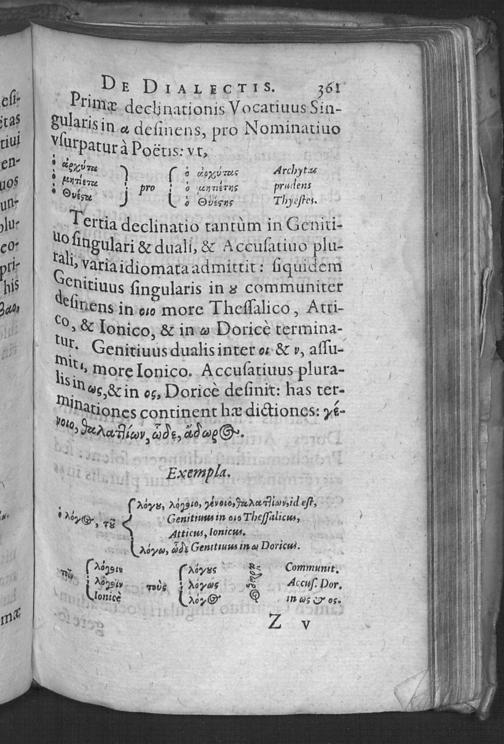 DE DIALECTIS. 361
Primæ declinationis Vocatiuus Sin-
gularis in α desinens, pro Nominatiuo
vsurpatur à Poëtis: vt,
ὁ ἀρχύτα ὁ ἀρχύτας Archytas
ὁ μητίετα pro ὁ μητιέτης prudens
ὁ Θυέστα ὁ Θυέστης Thyestes.
Tertia declinatio tantùm in Geniti-
uo singulari & duali, & Accusatiuo plu-
rali, varia idiomata admittit: siquidem
Genitiuus singularis in ȣ communiter
desinens in οιο more Thessalico, Atti-
co, & Ionico, & in ω Doricè termina-
tur. Genitiuus dualis inter οι & ν, assu-
mit ι, more Ionico. Accusatiuus plura-
lis in ως, & in ος, Doricè desinit: has ter-
minationes continent hæ dictiones: γέ-
νοιο,
Exempla.
λόγȣ, λόγοιο, γένοιο, id est,
ὁ λόγος, τȣ͂ Genitiuus in οιο Thessalicus,
Atticus, Ionicus.
λόγω, ὧδε Genitiuus in ω Doricus.
λόγοιν λόγȣς Communit.
τοῖν λόγοιϊν τοὺς λόγως Accus. Dor.
Ionicè λόγος in ως & ος.
Z v